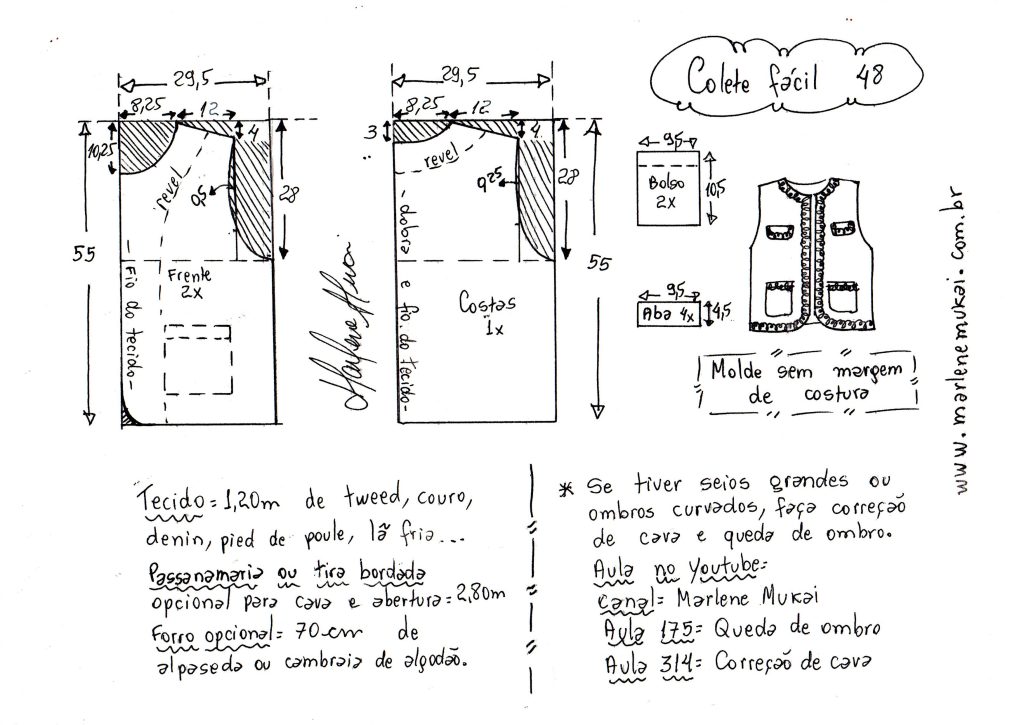 Colete fácil 48
29,5
8,25
12
4
10,25
55
28
revel
0,5
Frente
2x
- Fio do tecido -
29,5
8,25
12
3
4
revel
0,25
28
55
- dobra e fio do tecido -
Costas
1x
9,5
Bolso
2x
10,5
9,5
Aba 4x
4,5
Molde sem margem
de costura
www.marlenemukai.com.br
Tecido = 1,20m de tweed, couro,
denin, pied de poule, lã fria...
Passanamaria ou tira bordada
opcional para cava e abertura = 2,80m
Forro opcional = 70cm de
alpaseda ou cambraia de algodão.
* Se tiver seios grandes ou
ombros curvados, faça correção
de cava e queda de ombro.
Aula no Youtube=
canal= Marlene Mukai
Aula 175= Queda de ombro
Aula 314= Correção de cava